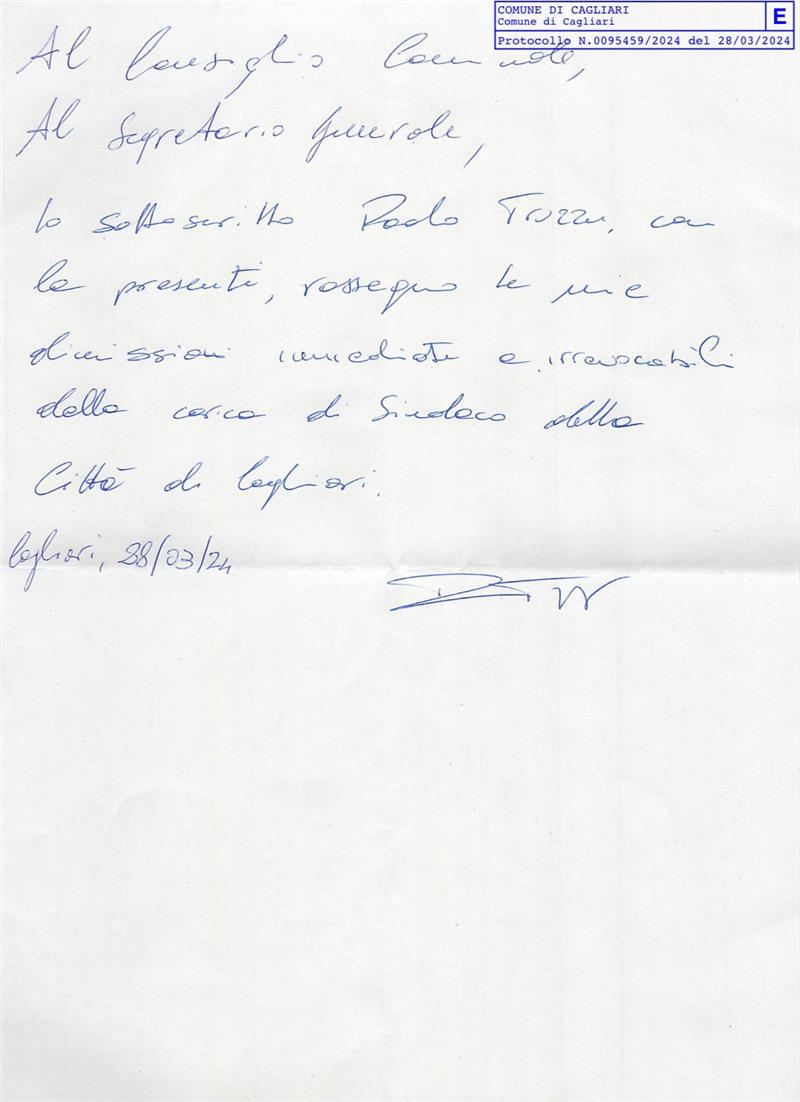 COMUNE DI CAGLIARI
Comune di Cagliari
E
Protocollo N.0095459/2024 del 28/03/2024
Al Consiglio Comunale,
Al Segretario Generale,
Io sottoscritto Paolo Truzzu, con
la presente, rassegno le mie
dimissioni immediate e irrevocabili
dalla carica di Sindaco della
Città di Cagliari.
Cagliari, 28/03/24